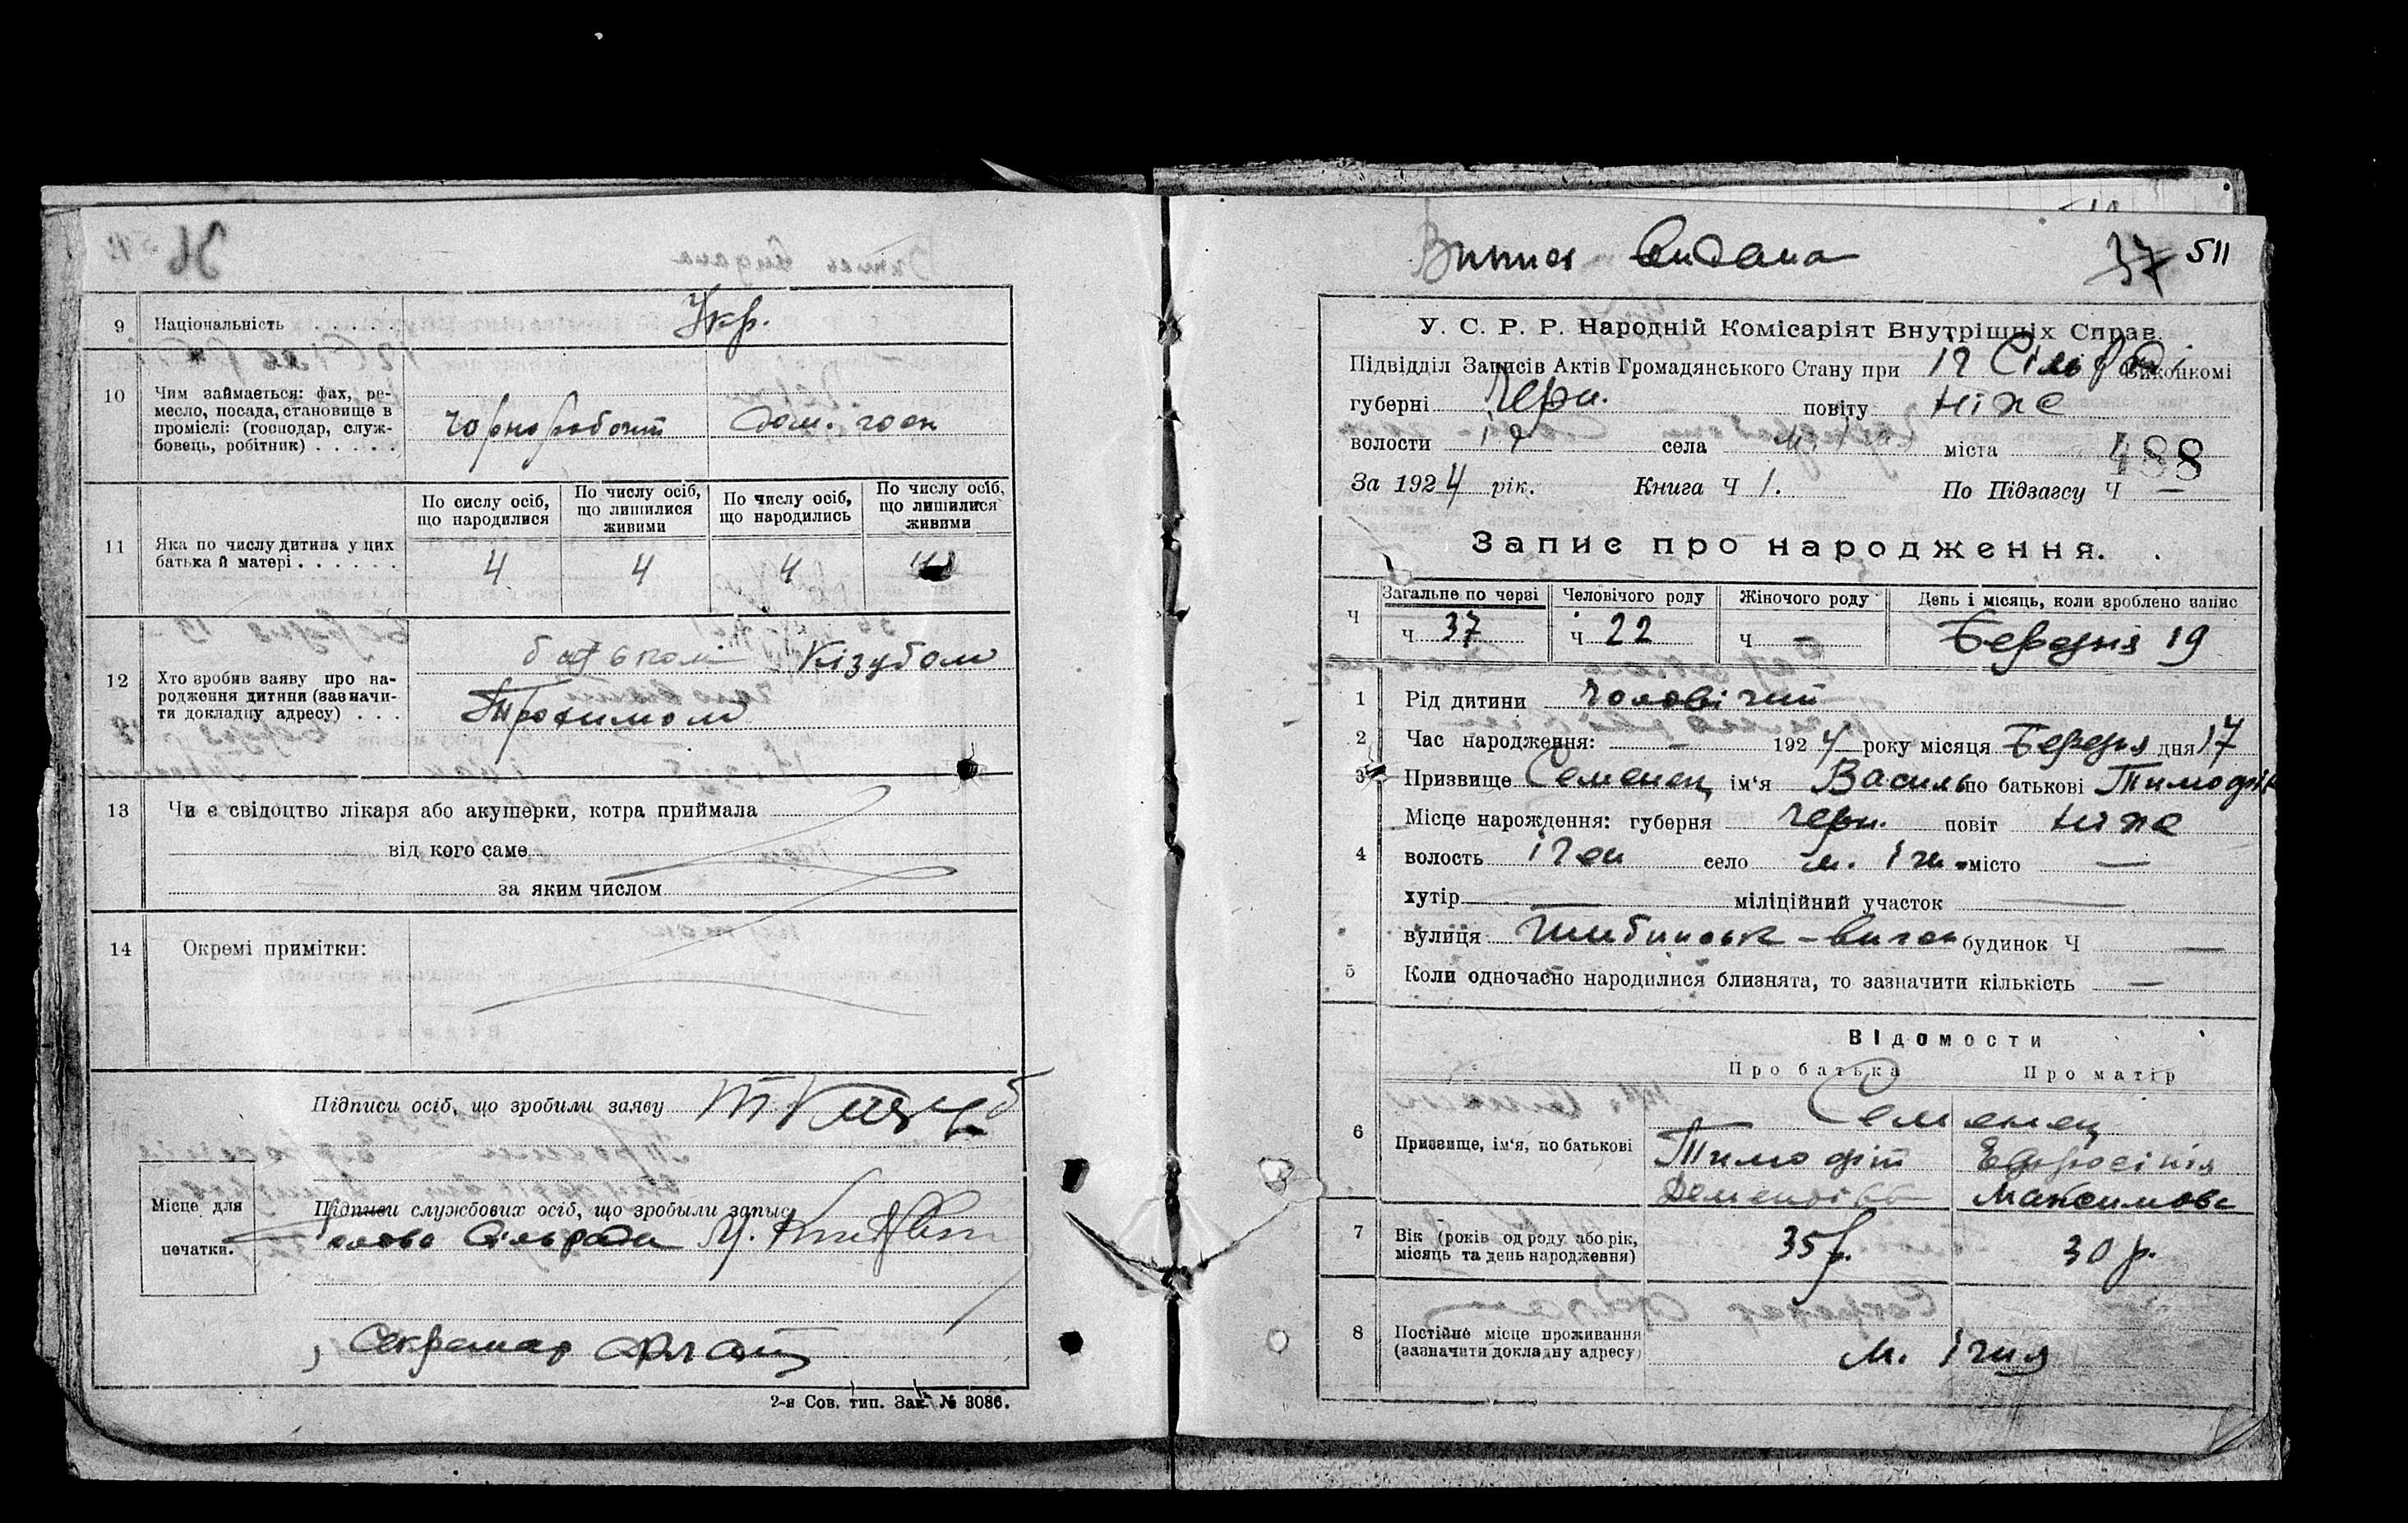 36
9 Національність Укр.
10 Чим займається: фах, ре-
месло, посада, становище в
проміслі: (господар, служ-
бовець, робітник)
Чорноробочий
Дом. госп
11 Яка по числу дитина у цих
батька й матері
По сислу осіб,
що народилися
По числу осіб,
що лишилися
живими
По числу осіб,
що народились
По числу осіб,
що лишилися
живими
4 4 4
12 Хто зробив заяву про на-
родження дитини (зазначи-
ти докладну адресу)
батьком Кізубом
Трохимом
13 Чи є свідоцтво лікаря або акушерки, котра приймала
від кого саме
за яким числом
14 Окремі примітки:
Підписи осіб, що зробили заяву Т Кізуб
Місце для
печатки.
Підписи службових осіб, що зробыли запис
Голова Сільради
Секретар
2-я Сов. тип. Зак. № 3086.
Випись видана
37 511
У. С. Р. Р. Народній Комісаріят Внутрішніх Справ.
Підвідділ Записів Актів Громадянського Стану при Іч Сільраді Виконкомі
губерні Черн. повіту Ніже
волости Іч села м. Іч міста 488
За 1924 рік. Книга Ч 1. По Підзагсу Ч —
Запис про народження.
Ч
Загальне по черзі
Ч 37
Человічого роду
Ч 22
Жіночого роду
Ч —
День і місяць, коли зроблено запис
Березня 19
1 Рід дитини Чоловічий
2 Час народження: — 1924 року місяця Березня дня 17
3 Призвище Семенец ім'я Василь по батькові Тимофів
4 Місце народження: губерня Черн. повіт Ніже
волость Ічен село м. Ічн. місто —
хутір — міліційний участок —
вулиця будинок Ч —
5 Коли одночасно народилися близнята, то зазначити кількість —
Відомости
Про батька Про матір
6 Призвище, ім'я, по батькові
Семенец
Тимофій Евфросінія
Дементієв Максимова
7 Вік (років од роду або рік,
місяць та день народження)
35 р. 30 р.
8 Постійне місце проживання
(зазначити докладну адресу)
м. Ічня